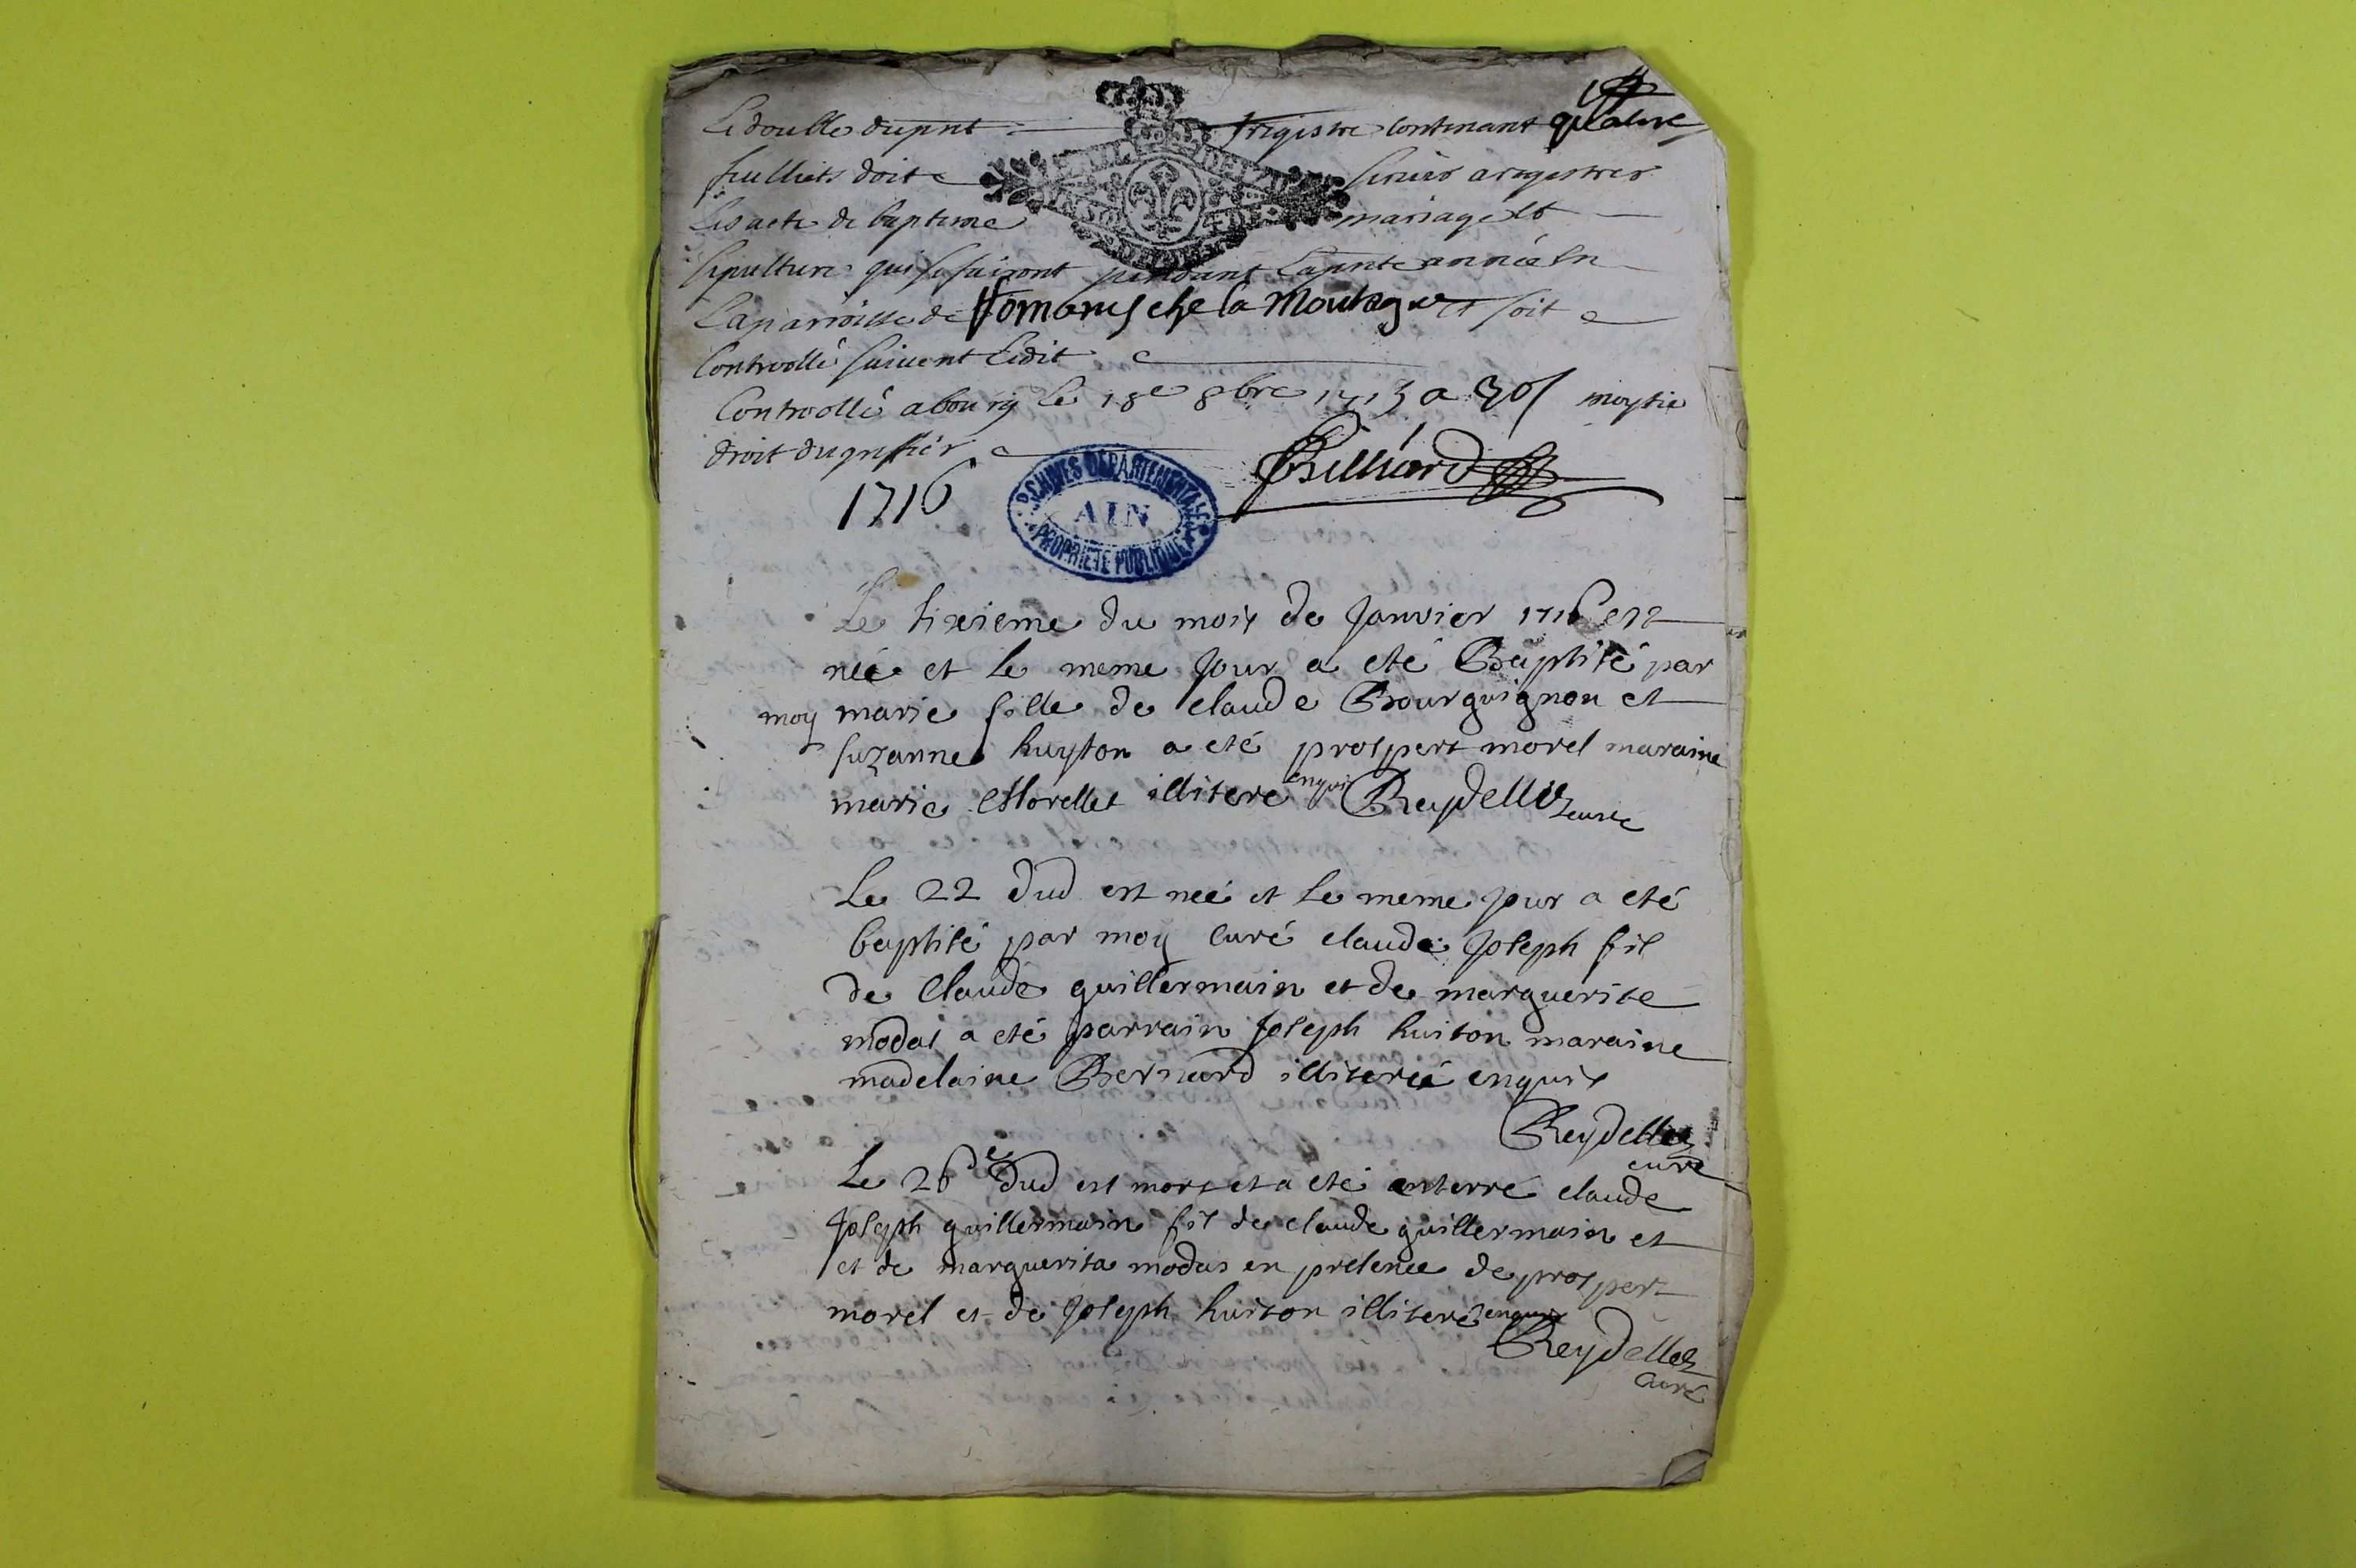 Le double du pnt registre contenant quatorze
feulliets doit servir a registrer
les acte de bapteme mariage et
sepulture qui se fairont pendant la pnte année en
la parroisse de Romanesche la Montagne et soit
controollé suivent ledit
Controollé a bourg le 18e 8bre 1715 a 30s moytié
droit du greffier
Billiard
1716
ARCHIVES DEPARTEMENTALES
AIN
PROPRIETE PUBLIQUE
Le sixieme du mois de Janvier 1716 est
née et le meme Jour a eté Baptisé par
moy marie fille de claude Bourguignon et
suzanne huyton a eté prospert morel maraine
marie Morellet illiteré enquis Reydellet curé
Le 22 dud est neé et le meme jour a eté
baptisé par moy curé claude Joseph fil
de Claude guillermain et de marguerite
modas a eté parrain Joseph huiton maraine
madelaine Bernard illitereé enquis
Reydellet
curé
Le 26e dud est mort et a eté enterré claude
Joseph guillermain fil de claude guillermain et
et de marguerita modas en presence de prospert
morel et de Joseph huiton illiteré enquis
Reydellet
curé